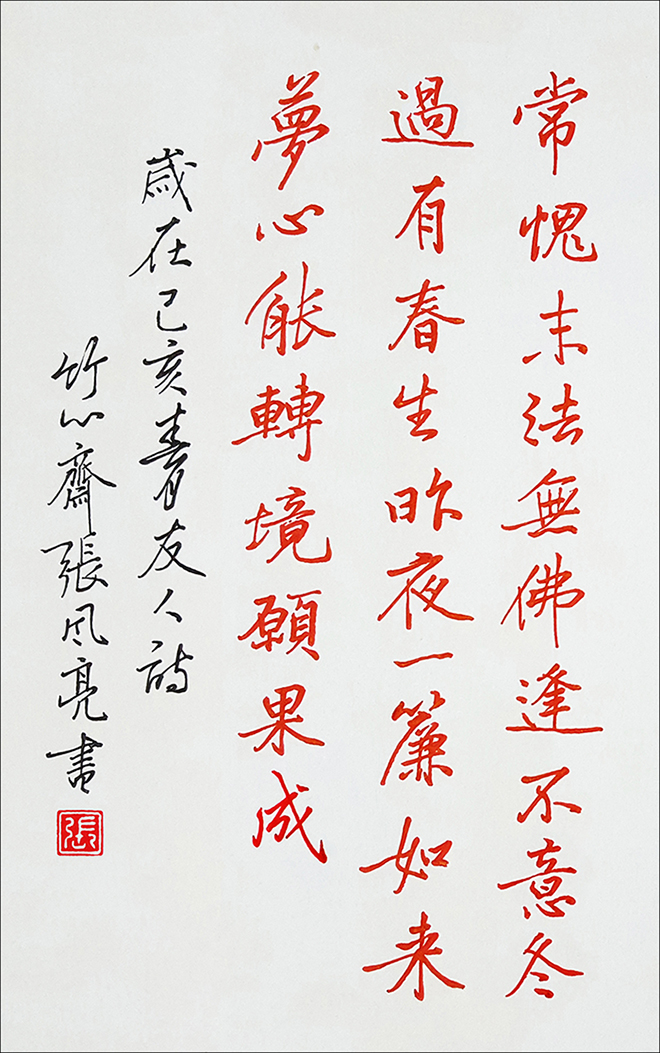 常愧末法無佛逢不意冬
過有春生昨夜一簾如来
夢心能轉境願果成
歲在己亥書友人詩
竹心齋張风亮書
張